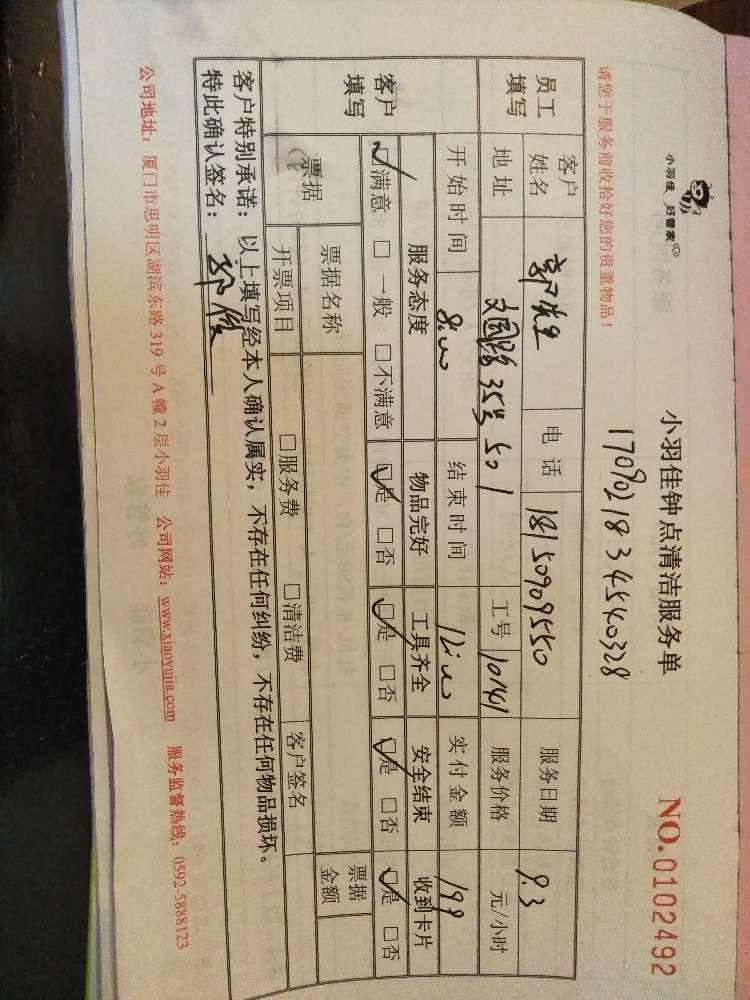 小羽佳 好管家
小羽佳钟点清洁服务单
NO.0102492
请您于服务前收拾好您的贵重物品！
员工填写
客户姓名 郭先生 电话 18150909550 服务日期 9.3
地址 文园路35号501 工号 10141 服务价格 元/小时
开始时间 8:00 结束时间 12:00 实付金额 199
客户填写
服务态度 物品完好 工具齐全 安全结束 收到卡片
☑满意 □一般 □不满意 ☑是 □否 ☑是 □否 ☑是 □否 ☑是 □否
票据 票据名称 票据金额
开票项目 □服务费 □清洁费 客户签名
客户特别承诺：以上填写经本人确认属实，不存在任何纠纷，不存在任何物品损坏。
特此确认签名：
公司地址：厦门市思明区湖滨东路319号A幢2层小羽佳 公司网站：www.xiaoyujia.com 服务监督热线：0592-5888123